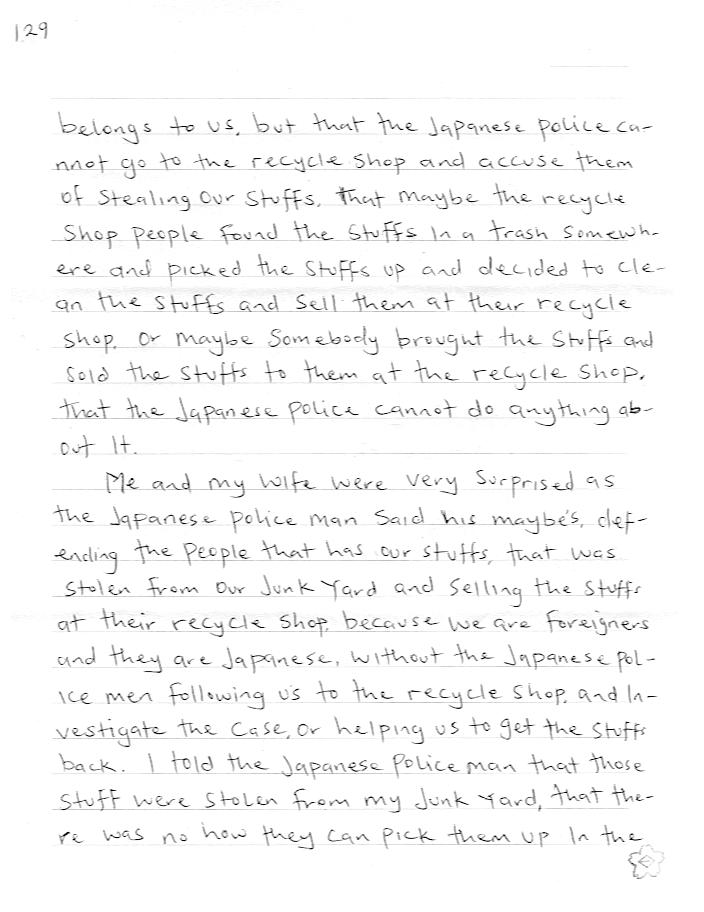 129
belongs to us, but that the Japanese police ca-
nnot go to the recycle shop and accuse them
of stealing our stuffs. that maybe the recycle
shop people found the stuffs in a trash somewh-
ere and picked the stuffs up and decided to cle-
an the stuffs and sell them at their recycle
shop. Or maybe somebody brought the stuffs and
sold the stuffs to them at the recycle shop.
that the Japanese police cannot do anything ab-
out it.
Me and my wife were very surprised as
the Japanese police man said his maybe's, def-
ending the people that has our stuffs, that was
stolen from our Junk Yard and selling the stuffs
at their recycle shop, because we are foreigners
and they are Japanese, without the Japanese pol-
ice men following us to the recycle shop, and in-
vestigate the case, or helping us to get the stuffs
back. I told the Japanese police man that those
stuff were stolen from my Junk Yard, that the-
re was no how they can pick them up in the